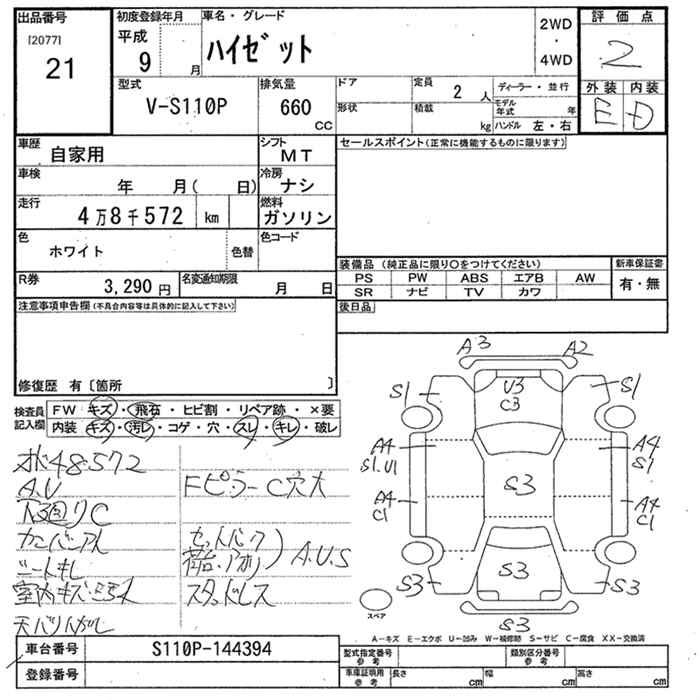 出品番号 初度登録年月 車名・グレード 評価点
[2077] 平成 ハイゼット 2WD 2
21 9 月 ・ 4WD
型式 排気量 ドア 定員 2 人 ディーラー・並行 外装 内装
V-S110P 660 CC 形状 積載 kg モデル年式 年 E D
ハンドル 左・右
車歴 自家用 シフト MT セールスポイント(正常に機能するものに限ります)
車検 年 月( 日) 冷房 ナシ
走行 4万8千572 km 燃料 ガソリン
色 ホワイト 色替 色コード
装備品(純正品に限り○をつけてください) 新車保証書
R券 3,290円 名変通知期限 月 日 PS PW ABS エアB AW 有・無
SR ナビ TV カワ
注意事項申告欄(不具合内容等は具体的に記入して下さい) 後日品
修復歴 有〔箇所 〕
検査員記入欄 FW キズ・飛石・ヒビ割・リペア跡・×要
内装 キズ・汚レ・コゲ・穴・スレ・キレ・破レ
A3 A2
S1 U3 S1
C3
A4 A4
S1.U1 S1
S3
A4 A4
C1 C1
S3 S3 S3
S3
スペア
48.572
A.U Fピラー C穴大
下廻りC
セットバック
荷台.アオリ) A.U.S
シートキレ
スタッドレス
天バリハガレ
A-キズ E-エクボ U-凹み W-補修跡 S-サビ C-腐食 XX-交換済
車台番号 S110P-144394 型式指定番号 参考 類別区分番号 参考
登録番号 車庫証明用 参考 長さ cm 幅 cm 高さ cm